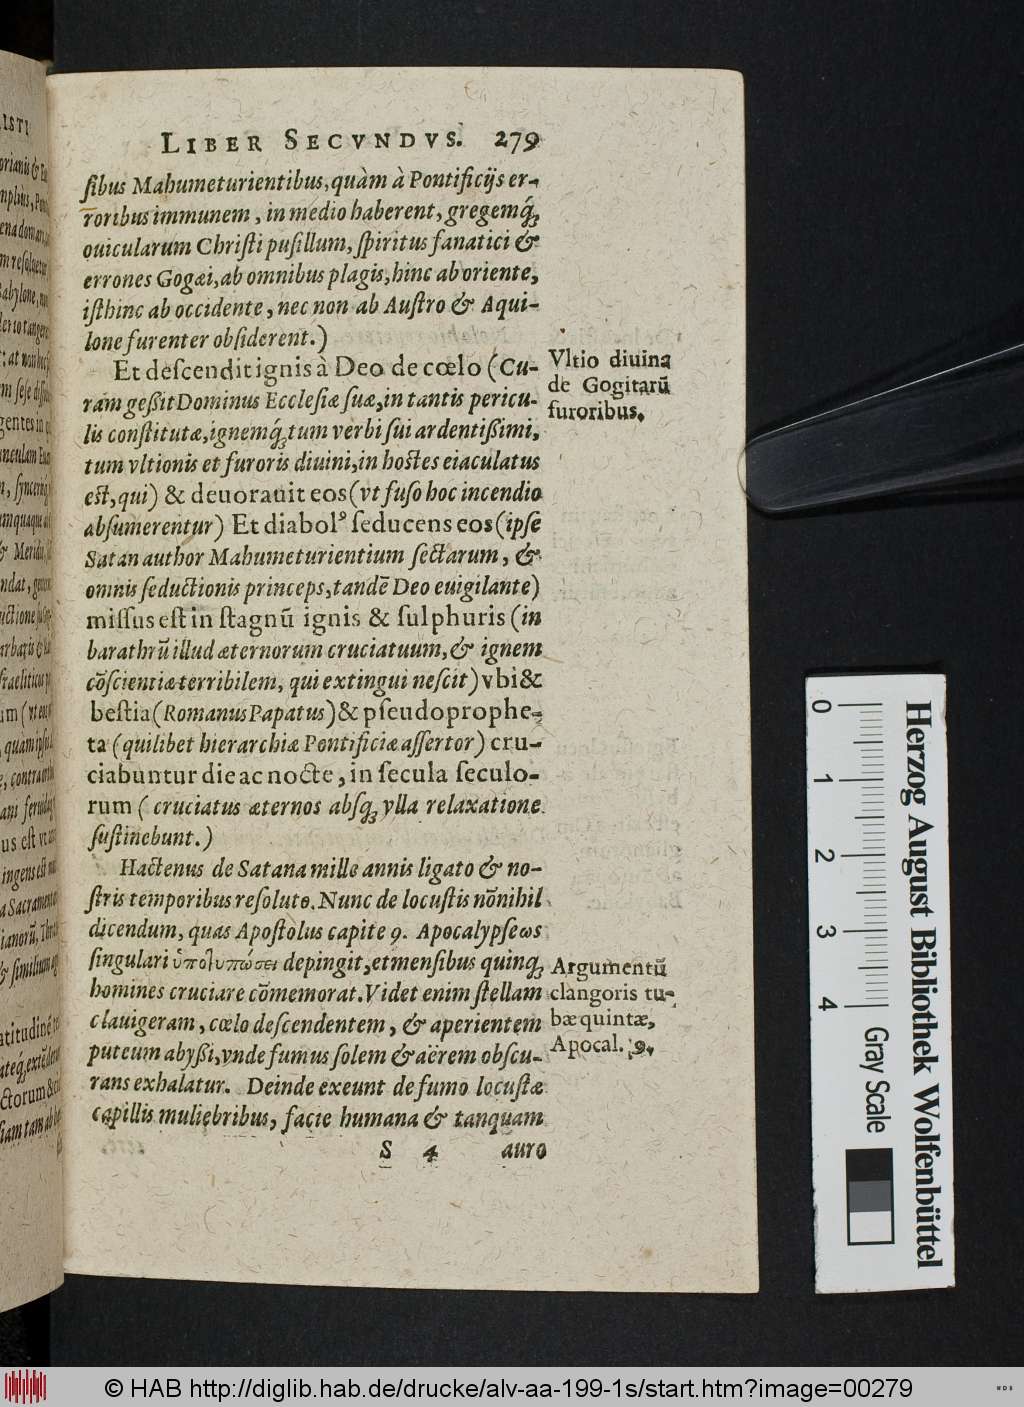 LIBER SECVNDVS. 279
ſibus Mahumeturientibus, quàm à Pontificijs er-
roribus immunem, in medio haberent, gregemq́ꝫ
ouicularum Chriſti puſillum, ſpiritus fanatici &
errones Gogæi, ab omnibus plagis, hinc ab oriente,
iſthinc ab occidente, nec non ab Auſtro & Aqui-
lone furenter obſiderent.)
Et deſcendit ignis à Deo de cœlo (Cu-
ram geßit Dominus Eccleſiæ ſuæ, in tantis pericu-
lis conſtitutæ, ignemq́ꝫ tum verbi ſui ardentißimi,
tum vltionis et furoris diuini, in hoſtes eiaculatus
eſt, qui) & deuorauit eos (vt fuſo hoc incendio
abſumerentur) Et diabolꝰ ſeducens eos (ipſe
Satan author Mahumeturientium ſectarum, &
omnis ſeductionis princeps, tandē Deo euigilante)
miſſus eſt in ſtagnū ignis & ſulphuris (in
barathrū illud æternorum cruciatuum, & ignem
cōſcientiæ terribilem, qui extingui neſcit) vbi &
beſtia (Romanus Papatus) & pſeudoprophe-
ta (quilibet hierarchiæ Pontificiæ aſſertor) cru-
ciabuntur die ac nocte, in ſecula ſeculo-
rum (cruciatus æternos abſqꝫ vlla relaxatione
ſuſtinebunt.)
Hactenus de Satana mille annis ligato & no-
ſtris temporibus reſoluto. Nunc de locuſtis nōnihil
dicendum, quas Apoſtolus capite 9. Apocalypſeωs
ſingulari ὑπολυπώσει depingit, et menſibus quinqꝫ
homines cruciare cōmemorat. Videt enim ſtellam
clauigeram, cœlo deſcendentem, & aperientem
puteum abyßi, vnde fumus ſolem & aërem obſcu-
rans exhalatur. Deinde exeunt de fumo locuſtæ
capillis muliebribus, facie humana & tanquam
S 4 auro
Vltio diuina
de Gogitarū
furoribus.
Argumentū
clangoris tu-
bæ quintæ,
Apocal. 9.
0 1 2 3 4
Herzog August Bibliothek Wolfenbüttel
Gray Scale
© HAB http://diglib.hab.de/drucke/alv-aa-199-1s/start.htm?image=00279